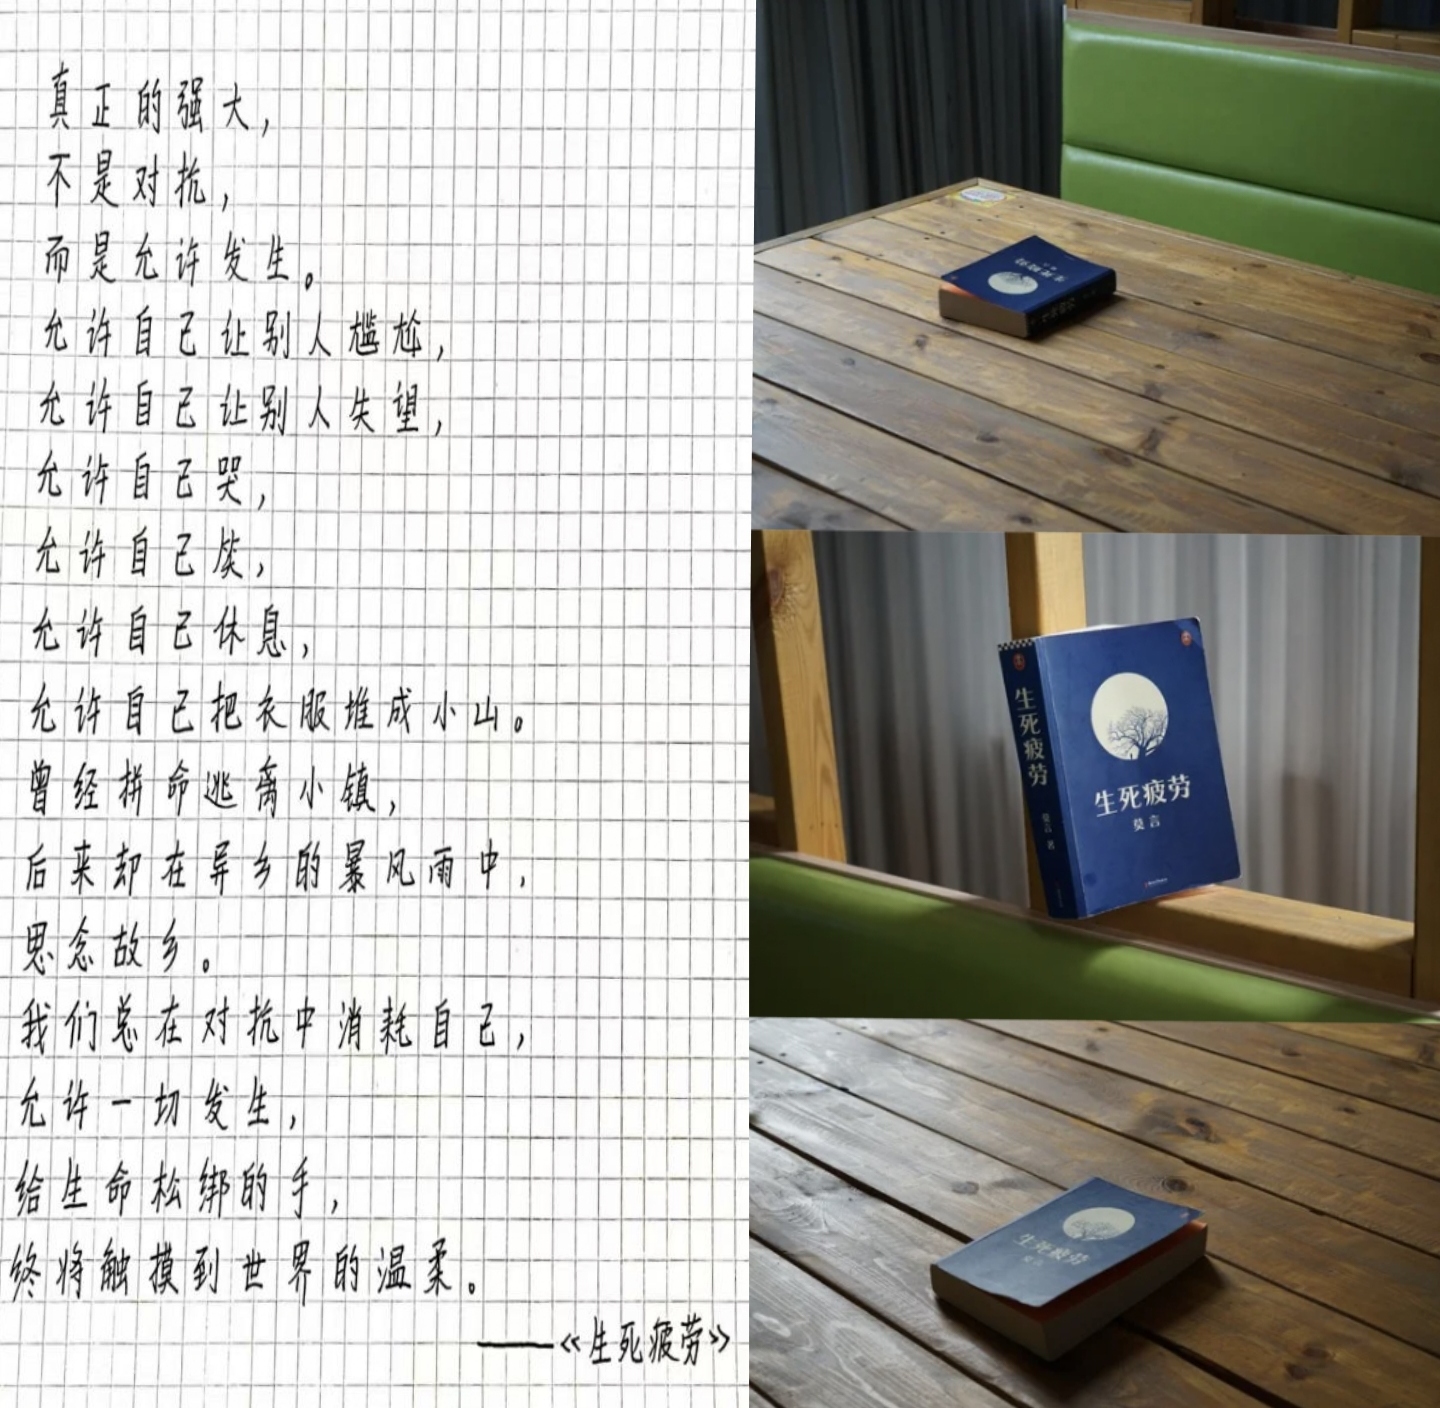 真正的强大，
不是对抗，
而是允许发生。
允许自己让别人尴尬，
允许自己让别人失望，
允许自己哭，
允许自己笑，
允许自己休息，
允许自己把衣服堆成小山。
曾经拼命逃离小镇，
后来却在异乡的暴风雨中，
思念故乡。
我们总在对抗中消耗自己，
允许一切发生，
给生命松绑的手，
终将触摸到世界的温柔。
——《生死疲劳》
生死疲劳
生死疲劳
莫言 著
生死疲劳
莫言
生死疲劳
莫言